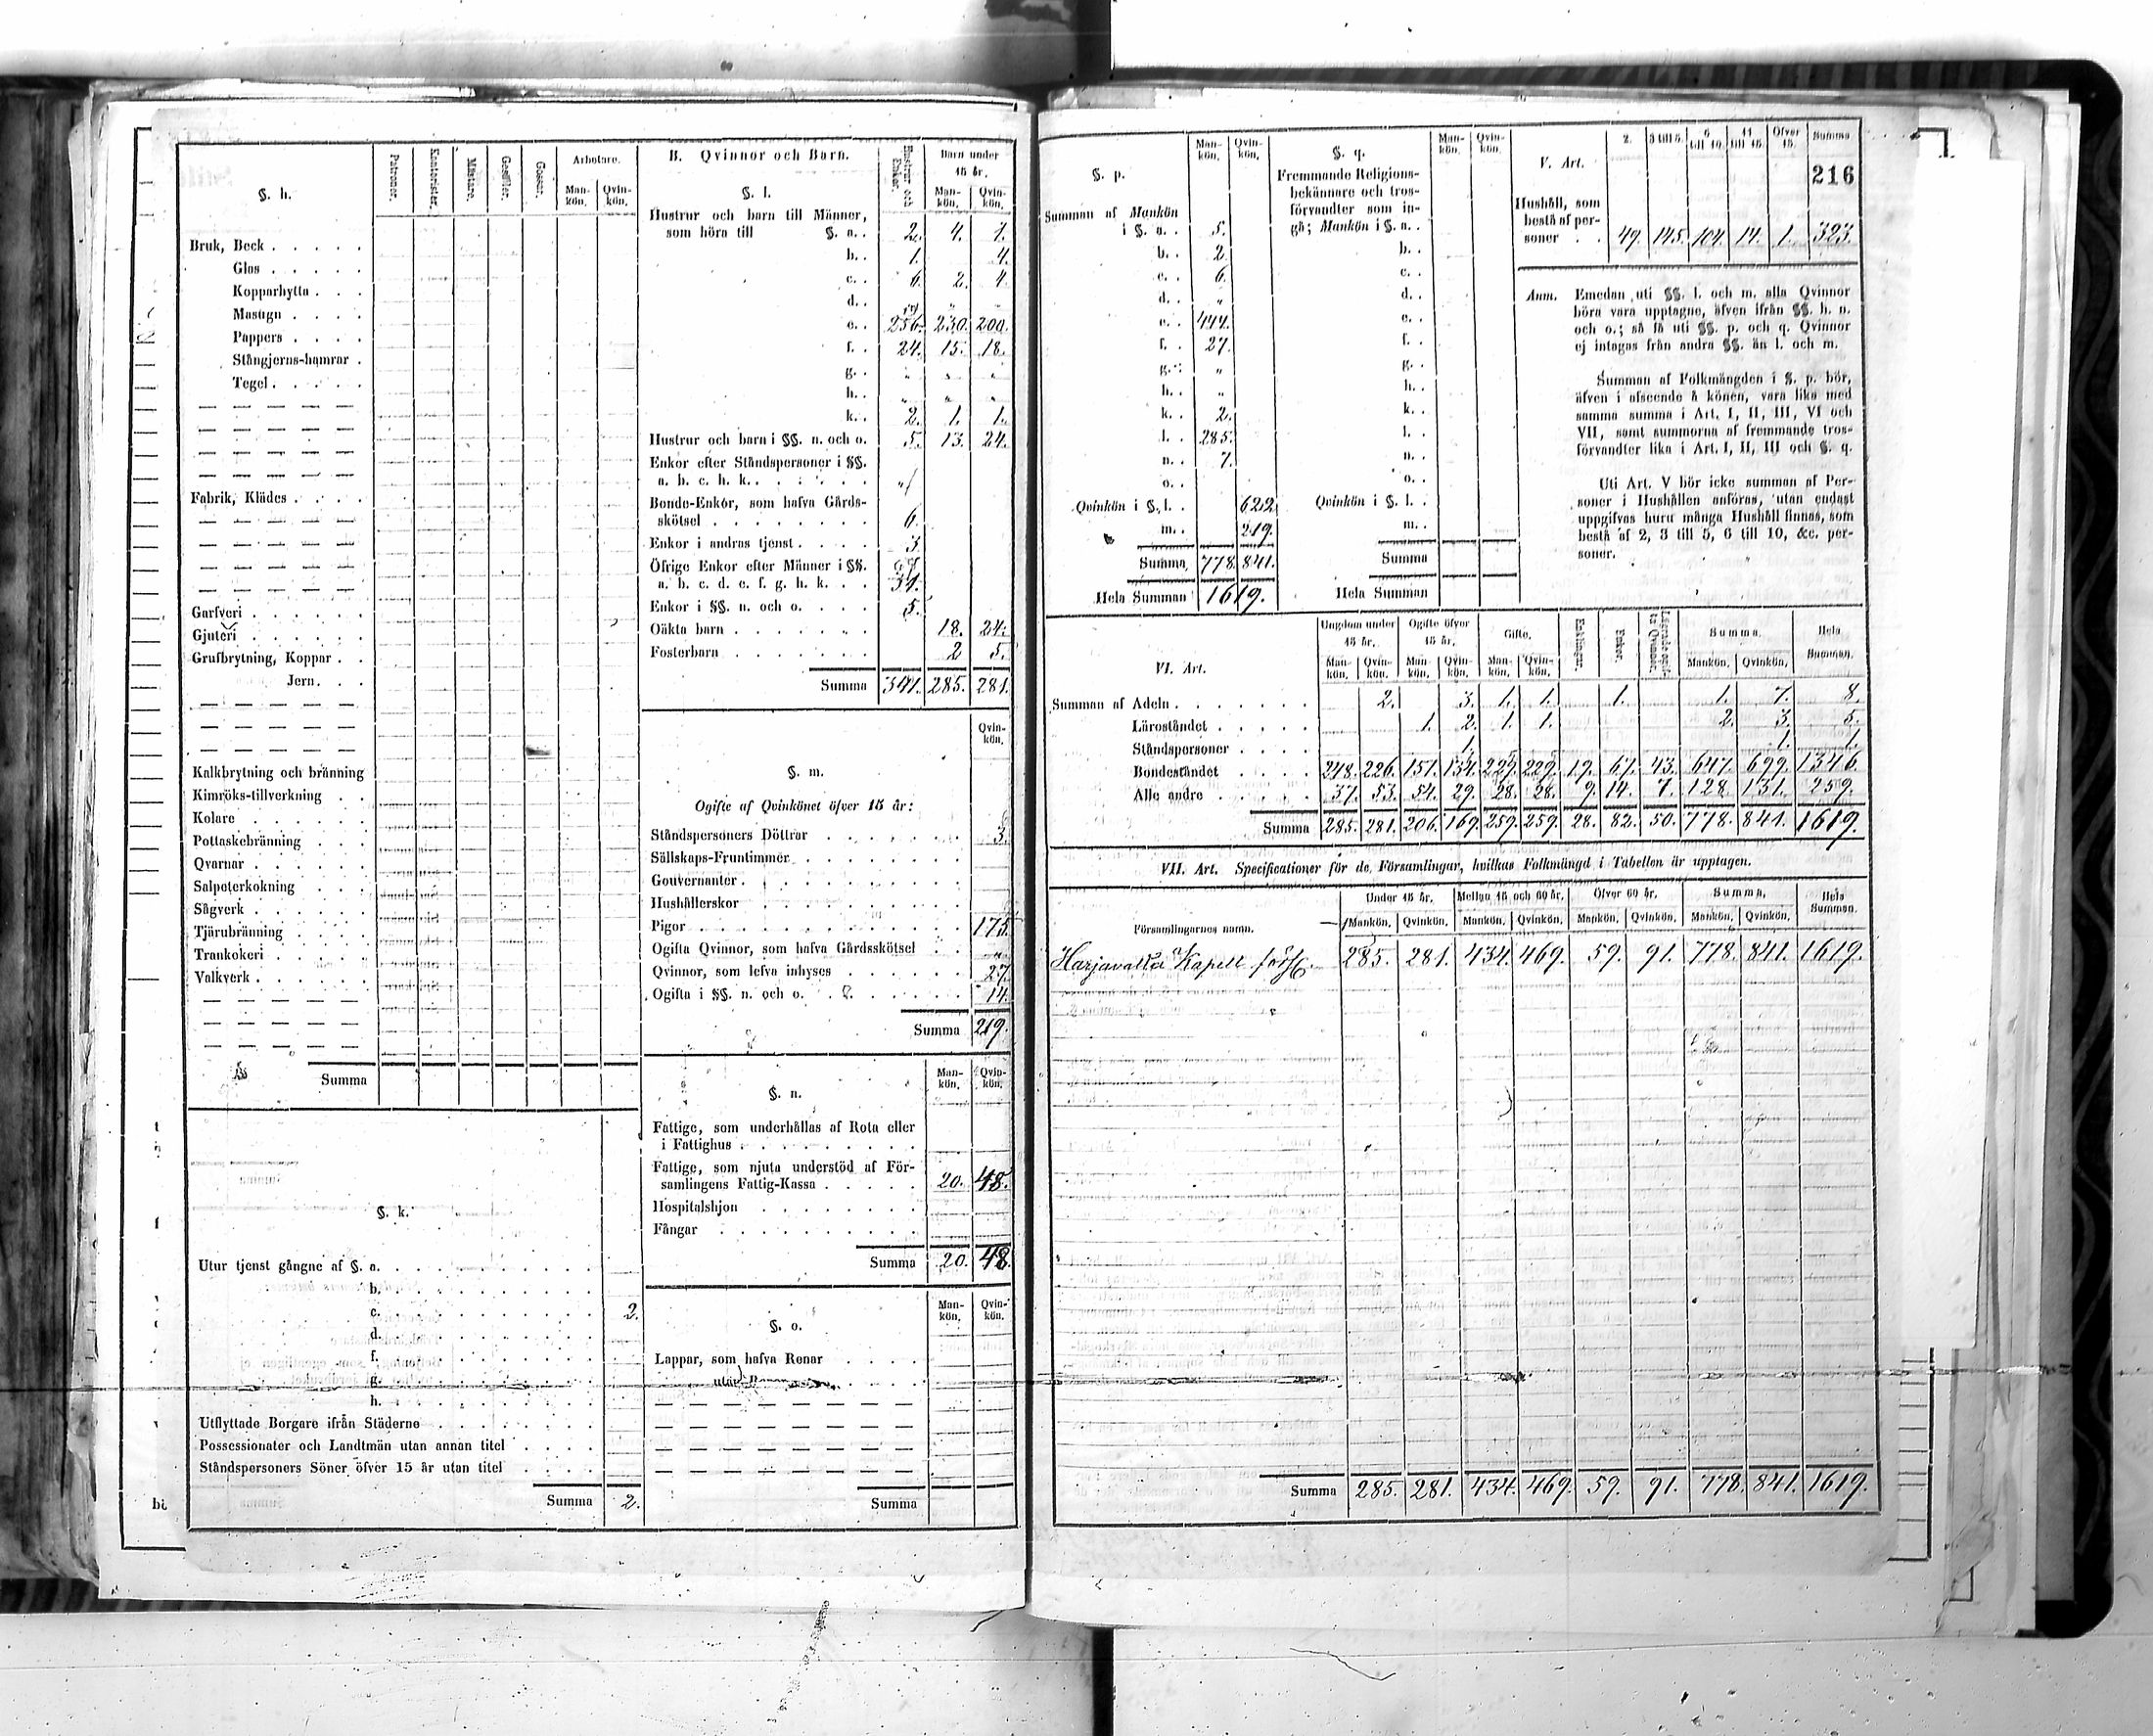 §. h.
Patroner. Kontorister. Mästare. Gesäller. Gossar. Arbetare.
Man-kön. Qvin-kön.
Bruk, Beck
Glas
Kopparhytta
Masugn
Pappers
Stångjerns-hamrar
Tegel
Fabrik, Klädes
Garfveri
Gjuteri
Grufbrytning, Koppar
Jern
Kalkbrytning och bränning
Kimröks-tillverkning
Kolare
Pottaskebränning
Qvarnar
Salpeterkokning
Sågverk
Tjärubränning
Trankokeri
Valkverk
Summa
§. k.
Utur tjenst gångne af §. a.
b.
c. 2.
d.
f.
g.
h.
Utflyttade Borgare ifrån Städerne
Possessionater och Landtmän utan annan titel
Ståndspersoners Söner öfver 15 år utan titel
Summa 2.
B. Qvinnor och Barn.
Hustrur och Enkor. Barn under 15 år.
Man-kön. Qvin-kön.
§. l.
Hustrur och barn till Männer,
som höra till §. a. 2. 4. 1.
b. 1. 4.
c. 6. 2. 4.
d. " "
e. 256. 230. 200.
f. 24. 15. 18.
g. " " "
h. " " "
k. 2. 1. 1.
Hustrur och barn i §§. n. och o. 5. 13. 24.
Enkor efter Ståndspersoner i §§.
a. b. c. h. k.
Bonde-Enkor, som hafva Gårds-
skötsel 6.
Enkor i andras tjenst 3.
Öfrige Enkor efter Männer i §§.
a. b. c. d. e. f. g. h. k. 31.
Enkor i §§. n. och o. 5.
Oäkta barn 18. 24.
Fosterbarn 2 5.
Summa 341. 285. 281.
Qvin-kön.
§. m.
Ogifte af Qvinkönet öfver 15 år:
Ståndspersoners Döttrar 3.
Sällskaps-Fruntimmer
Gouvernanter
Hushållerskor
Pigor 175.
Ogifta Qvinnor, som hafva Gårdsskötsel "
Qvinnor, som lefva inhyses 27.
Ogifta i §§. n. och o. 14.
Summa 219.
Man-kön. Qvin-kön.
§. n.
Fattige, som underhållas af Rota eller
i Fattighus
Fattige, som njuta understöd af För-
samlingens Fattig-Kassa 20. 48.
Hospitalshjon
Fångar
Summa 20. 48.
Man-kön. Qvin-kön.
§. o.
Lappar, som hafva Renar
utan
Summa
§. p. Man-kön. Qvin-kön.
Summan af Mankön
i §. a. 5.
b. 2
c. 6.
d. "
e. 444.
f. 27.
g. "
h. "
k. 2.
l. 285.
n. 7.
o.
Qvinkön i §. l. 622
m. 219.
Summa 778. 841.
Hela Summan 1619.
§. q. Man-kön. Qvin-kön.
Fremmande Religions-
bekännare och tros-
förvandter som in-
gå; Mankön i §. a.
b.
c.
d.
e.
f.
g.
h.
k.
l.
n.
o.
Qvinkön i §. l.
m.
Summa
Hela Summan
V. Art. 2. 3 till 5. 6 till 10. 11 till 15. Öfver 15. Summa
216
Hushåll, som
bestå af per-
soner 49. 145. 104. 14. 1. 323.
Anm. Emedan uti §§. l. och m. alla Qvinnor
böra vara upptagne, äfven ifrån §§. h. n.
och o.; så få uti §§. p. och q. Qvinnor
ej intagas från andra §§. än l. och m.
Summan af Folkmängden i §. p. bör,
äfven i afseende å könen, vara lika med
samma summa i Art. I, II, III, VI och
VII, samt summorna af fremmande tros-
förvandter lika i Art. I, II, III och §. q.
Uti Art. V bör icke summan af Per-
soner i Hushållen anföras, utan endast
uppgifvas huru många Hushåll finnas, som
bestå af 2, 3 till 5, 6 till 10, &c. per-
soner.
VI. Art.
Ungdom under 15 år. Ogifte öfver 15 år. Gifte. Enklingar. Enkor. Summa. Hela Summan.
Man-kön. Qvin-kön. Man-kön. Qvin-kön. Man-kön. Qvin-kön. Mankön. Qvinkön.
Summan af Adeln 2. 3. 1. 1. 1. 1. 7. 8.
Läroståndet 1. 2. 1. 1. 2. 3. 5.
Ståndspersoner 1. 1. 1.
Bondeståndet 248. 226. 151. 134. 229. 229. 19. 67. 43. 647. 699. 1346.
Alle andre 37. 53. 54. 29. 28. 28. 9. 14. 7. 128 131. 259.
Summa 285. 281. 206. 169. 259. 259. 28. 82. 50. 778. 841. 1619.
VII. Art. Specificationer för de Församlingar, hvilkas Folkmängd i Tabellen är upptagen.
Församlingarnes namn.
Under 15 år. Mellan 15 och 60 år. Öfver 60 år. Summa. Hela Summan.
Mankön. Qvinkön. Mankön. Qvinkön. Mankön. Qvinkön. Mankön. Qvinkön.
Harjavalta Kapell 285. 281. 434. 469. 59. 91. 778. 841. 1619.
Summa 285. 281. 434. 469. 59. 91. 778. 841. 1619.